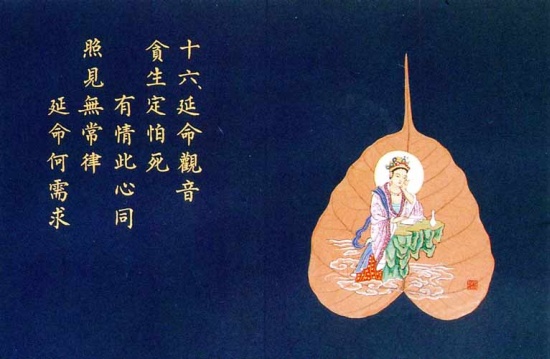 十六、延命觀音
貪生定怕死
有情此心同
照見無常律
延命何需求